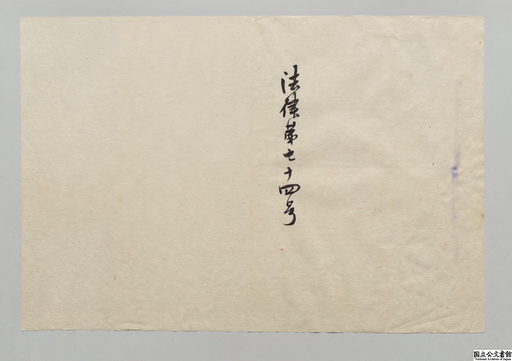 法律第七十四号
国立公文書館
National Archives of Japan